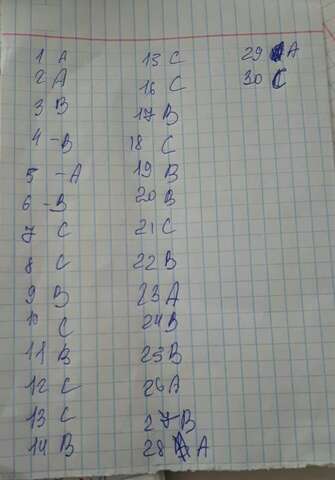 1 A
2 A
3 B
4 - B
5 - A
6 - B
7 C
8 C
9 B
10 C
11 B
12 C
13 C
14 B
15 C
16 C
17 B
18 C
19 B
20 B
21 C
22 B
23 A
24 B
25 B
26 A
27 B
28 A
29 A
30 C